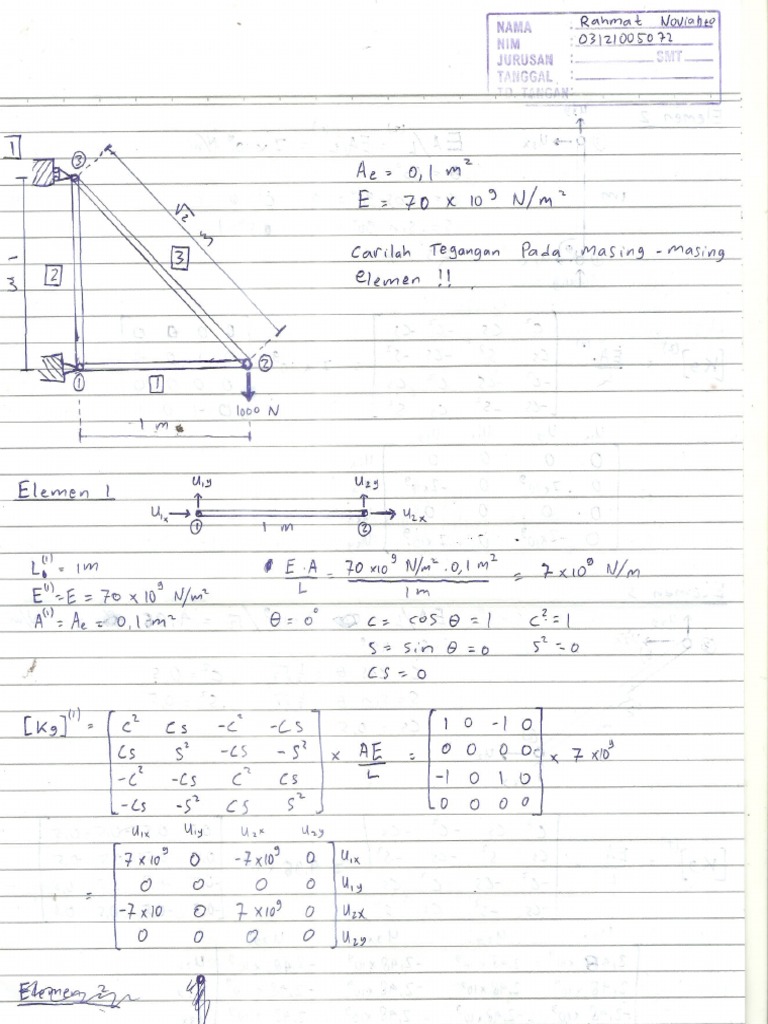 NAMA : Rahmat Novianto
NIM : 03121005072
JURUSAN : SMT
TANGGAL :
TD. TANGAN:
1
3
√2 m
2
3
1 m
1
1
2
1000 N
1 m
Ae = 0,1 m²
E = 70 × 10⁹ N/m²
Carilah Tegangan Pada masing-masing
elemen !!
Elemen 1
U1y U2y
U1x 1 1 m 2 U2x
L⁽¹⁾ = 1m
E⁽¹⁾ = E = 70 × 10⁹ N/m²
A⁽¹⁾ = Ae = 0,1 m²
E·A/L = 70×10⁹ N/m² · 0,1 m² / 1m = 7×10⁹ N/m
θ = 0° c = cos θ = 1 c² = 1
s = sin θ = 0 s² = 0
cs = 0
[Kg]⁽¹⁾ = [ c² cs -c² -cs ] × AE/L = [ 1 0 -1 0 ] × 7×10⁹
cs s² -cs -s² 0 0 0 0
-c² -cs c² cs -1 0 1 0
-cs -s² cs s² 0 0 0 0
U1x U1y U2x U2y
= [ 7×10⁹ 0 -7×10⁹ 0 ] U1x
0 0 0 0 U1y
-7×10 0 7×10⁹ 0 U2x
0 0 0 0 U2y
Elemen 2